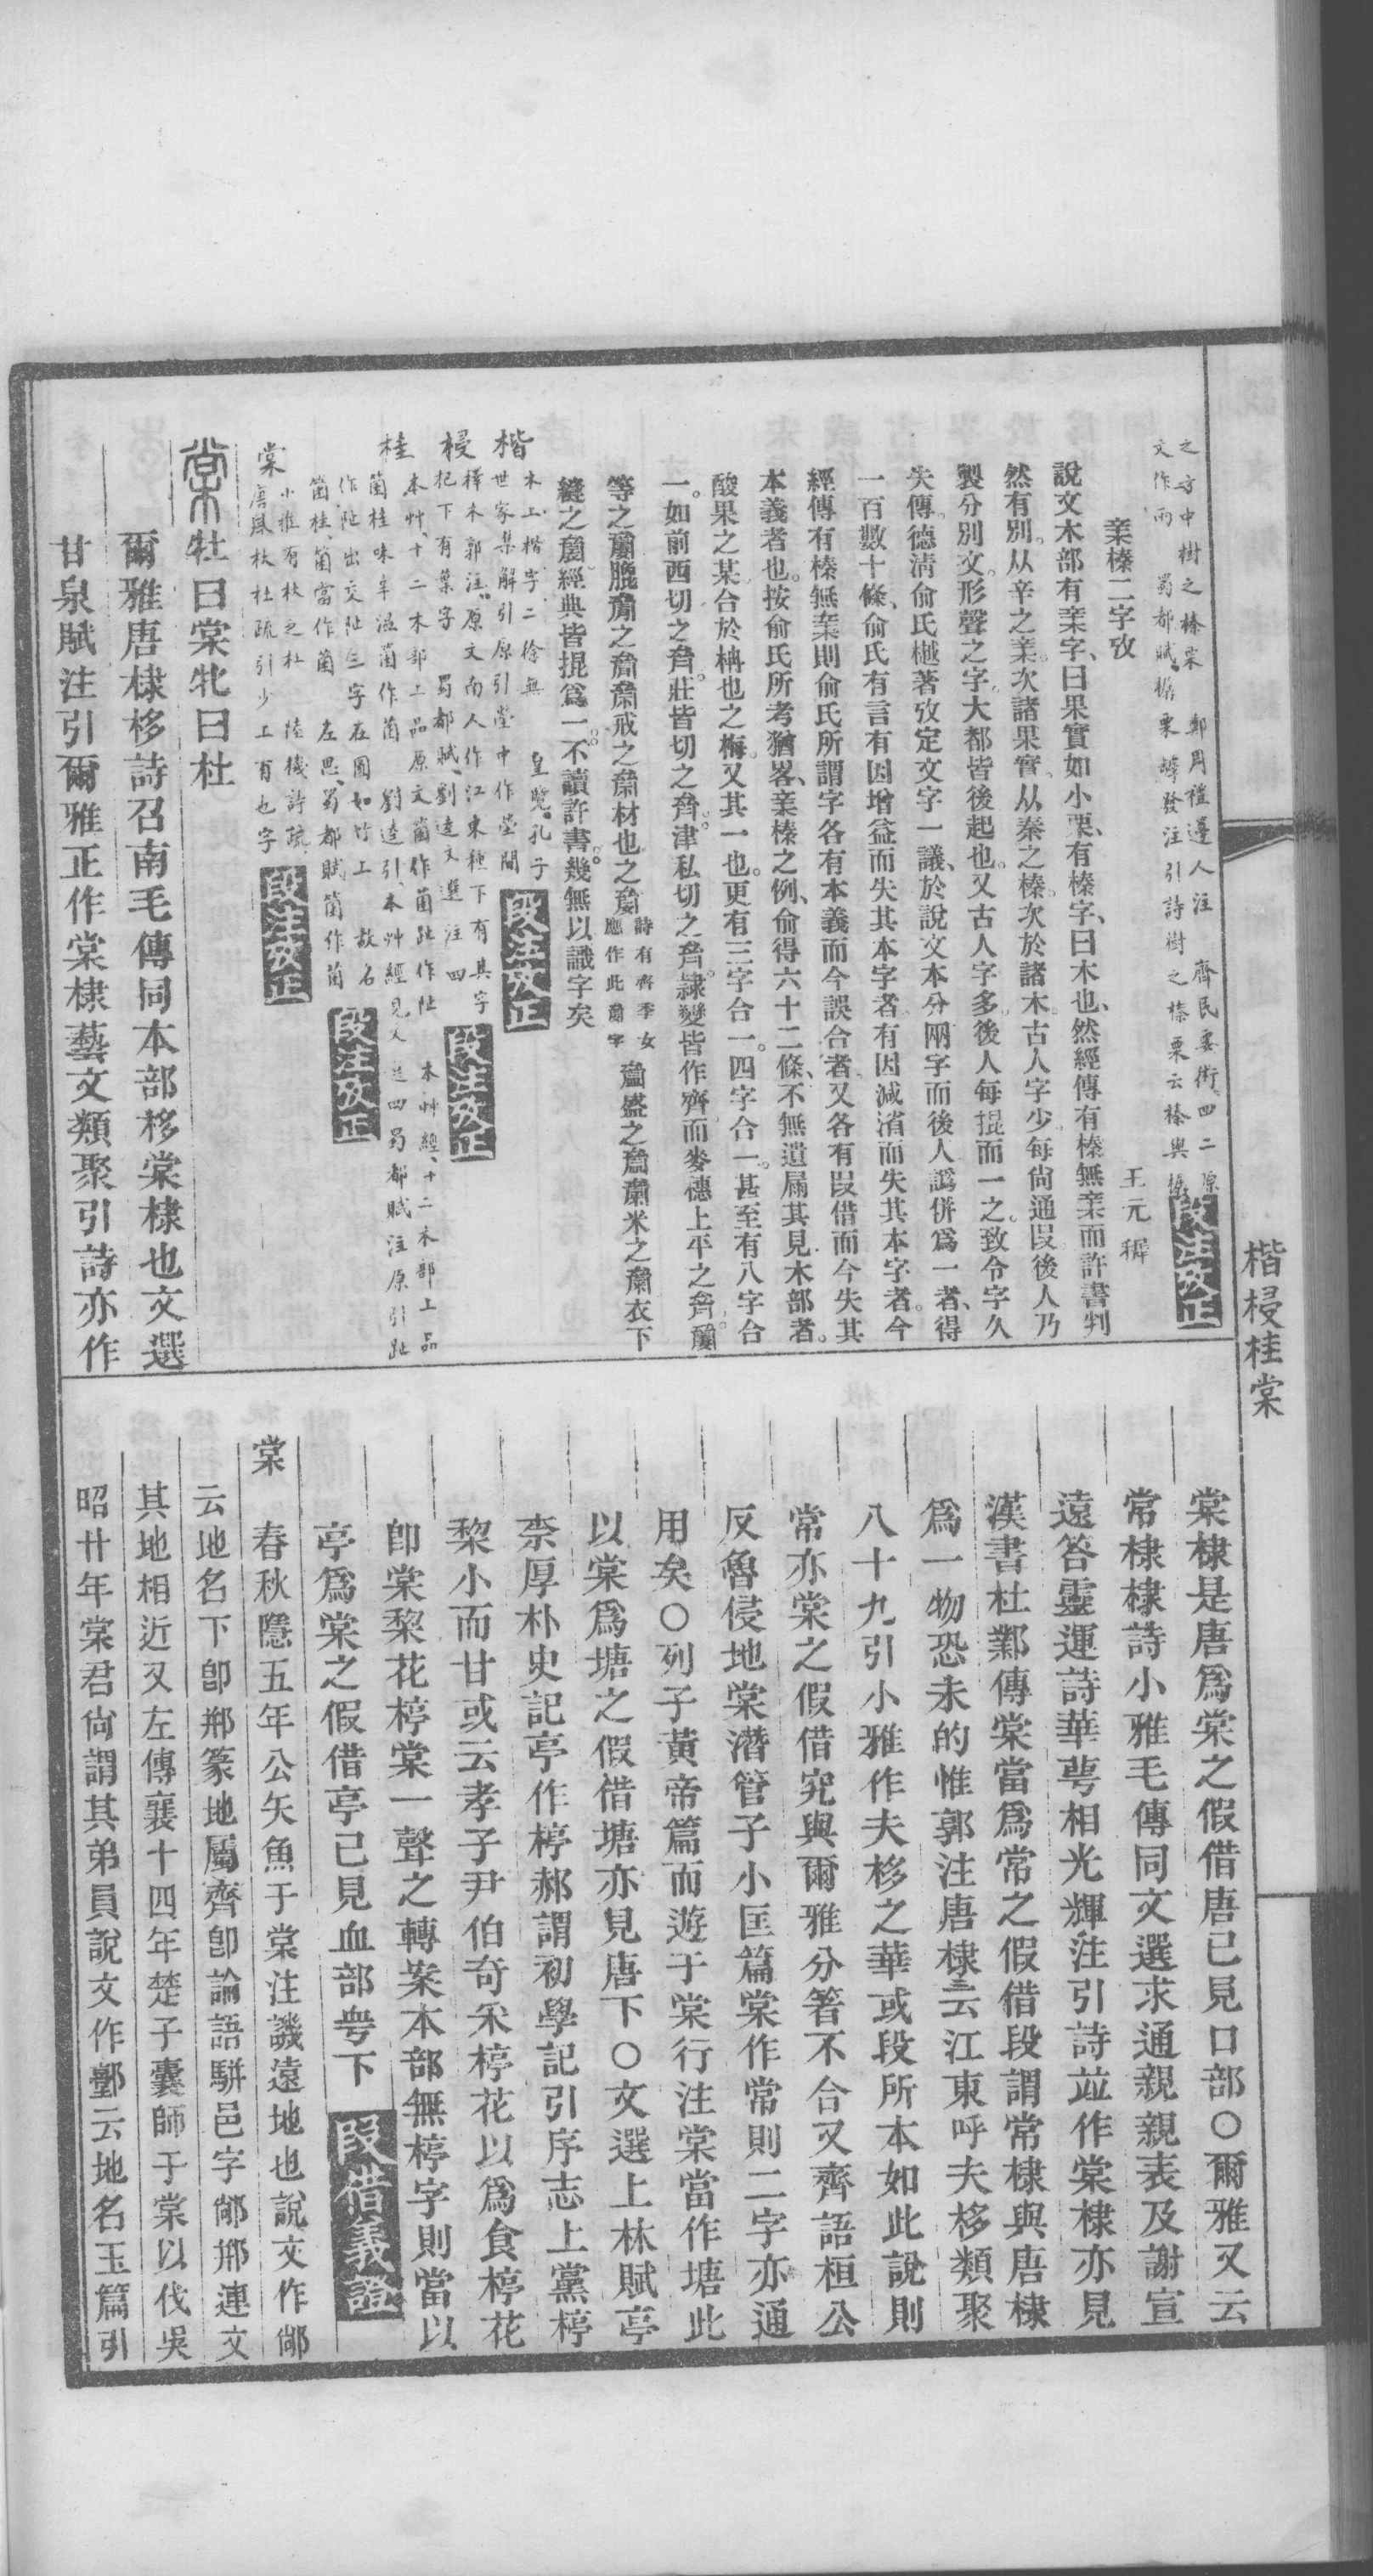 楷梫桂棠
之方中樹之榛栗　鄭周禮籩人注　齊民要術四二原
文作兩　蜀都賦、榛栗罅發注引詩樹之榛栗云榛與
段注攷正
亲榛二字攷　王元穉
說文木部有亲字、曰果實如小栗、有榛字、曰木也、然經傳有榛無亲而許書判
然有別。从辛之亲。次諸果實。从秦之榛。次於諸木。古人字少。每尙通叚後人乃
製分別文。形聲之字。大都皆後起也。又古人字多。後人每掍而一之。致令字久
失傳。德淸俞氏樾著攷定文字一議、於說文本分兩字而後人譌倂爲一者、得
一百數十條、俞氏有言有因增益而失其本字者、有因減渻而失其本字者。今
經傳有榛無亲則俞氏所謂字各有本義而今誤合者、又各有叚借而今失其
本義者也。按俞氏所考猶畧、亲榛之例、俞得六十二條、不無遺屚其見木部者。
酸果之某合於枏也之梅。又其一也。更有三字合一。四字合一。甚至有八字合
一。如前西切之齊。莊皆切之齊。津私切之齊。隷變皆作齊。而麥穗上平之齊。
等之　之　戒之　材也之　詩有齊季女　應作此　字　盛之　米之　衣下
縫之　經典皆掍爲一。不讀許書。幾無以識字矣
楷　木上楷字二徐無　皇覽、孔子
世家集解引原引塋中作塋閒
段注攷正
梫　擇木郭注、原文南人作江東種下有其字
杞下有葉字　蜀都賦、劉逵文選注四
段注攷正
桂　本艸、十二木部上品原文箘作菌趾作阯　本艸經、十二木部上品
箘桂味辛溫菌作箘　劉逵引、本艸經見文選四蜀都賦注原引趾
作阯出交阯三字在圓如竹上　故名
箘桂、箘當作菌　左思、蜀都賦箘作菌
段注攷正
棠　小雅有杕之杜　陸機詩疏
唐風杕杜疏引少上有也字
段注攷正
棠　牡曰棠牝曰杜
爾雅唐棣栘詩召南毛傳同本部栘棠棣也文選
甘泉賦注引爾雅正作棠棣藝文類聚引詩亦作
棠棣是唐爲棠之假借唐已見口部○爾雅又云
常棣棣詩小雅毛傳同文選求通親親表及謝宣
遠答靈運詩華萼相光輝注引詩竝作棠棣亦見
漢書杜鄴傳棠當爲常之假借段謂常棣與唐棣
爲一物恐未的惟郭注唐棣云江東呼夫栘類聚
八十九引小雅作夫栘之華或段所本如此說則
常亦棠之假借究與爾雅分箸不合又齊語桓公
反魯侵地棠潛管子小匡篇棠作常則二字亦通
用矣○列子黃帝篇而遊于棠行注棠當作塘此
以棠爲塘之假借塘亦見唐下○文選上林賦亭
柰厚朴史記亭作楟郝謂初學記引序志上黨楟
棃小而甘或云孝子尹伯奇采楟花以爲食楟花
卽棠棃花楟棠一聲之轉案本部無楟字則當以
亭爲棠之假借亭已見血部甹下
段借義證
棠　春秋隱五年公矢魚于棠注譏遠地也說文作鄌
云地名下卽郱篆地屬齊卽論語駢邑字鄌郱連文
其地相近又左傳襄十四年楚子囊師于棠以伐吳
昭廿年棠君尙謂其弟員說文作鄌云地名玉篇引